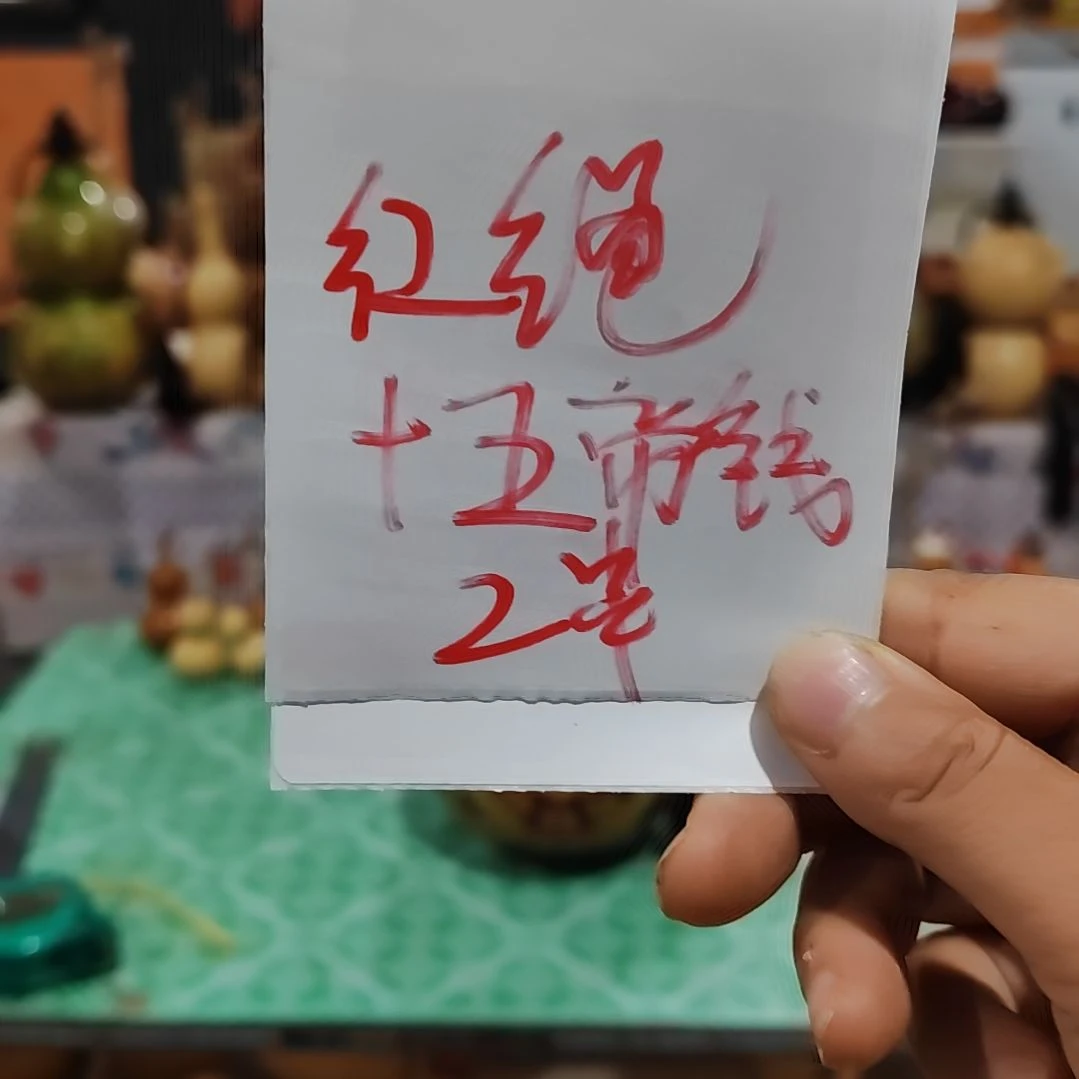 红绳
十五帝钱
2单